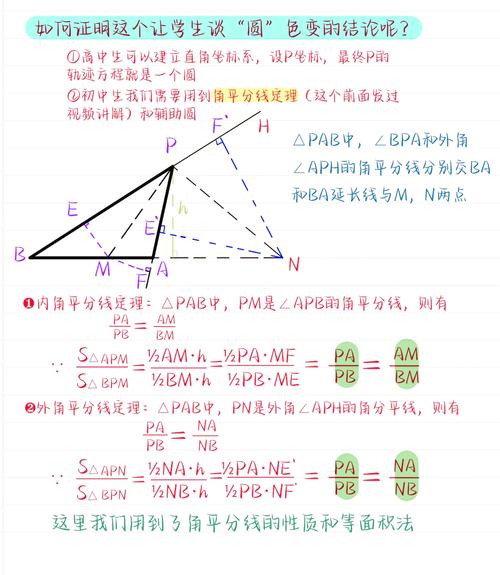 如何证明这个让学生谈“圆”色变的结论呢？
①高中生可以建立直角坐标系，设P坐标，最终P的
轨迹方程就是一个圆
②初中生我们需要用到角平分线定理（这个前面发过
视频讲解）和辅助圆
F' H
P
E
h
E'
B M A N
F
△PAB中，∠BPA和外角
∠APH的角平分线分别交BA
和BA延长线与M，N两点
❶内角平分线定理：△PAB中，PM是∠APB的角平分线，则有
PA/PB = AM/BM
∵ S△APM/S△BPM = ½AM·h/½BM·h = ½PA·MF/½PB·ME = PA/PB = AM/BM
❷外角平分线定理：△PAB中，PN是外角∠APH的角分平线，则有
PA/PB = NA/NB
∵ S△APN/S△BPN = ½NA·h/½NB·h = ½PA·NE'/½PB·NF' = PA/PB = NA/NB
这里我们用到了角平分线的性质和等面积法